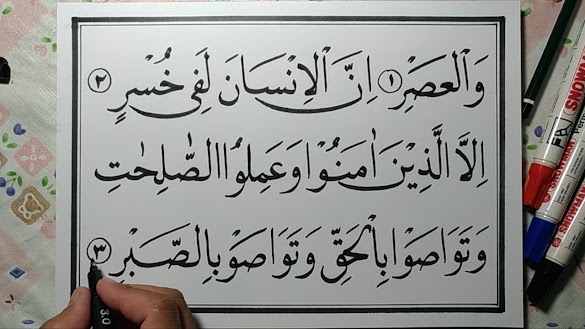 وَالْعَصْرِ ١ اِنَّ الْاِنْسَانَ لَفِى خُسْرٍ ٢
اِلَّا الَّذِيْنَ اٰمَنُوْا وَعَمِلُوا الصّٰلِحٰتِ
وَتَوَاصَوْا بِالْحَقِّ وَتَوَاصَوْا بِالصَّبْرِ ٣
SNOWMAN
3.0